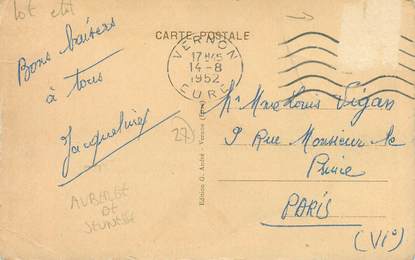 CARTE POSTALE
VERNON
17H45
14-8
1952
EURE
Bons baisers
à tous
Jacqueline
27
AUBERGE
DE
JEUNESSE
Edition G. André - Vernon (Eure)
Vigan
9 Rue Monsieur le
Prince
PARIS
(VIº)